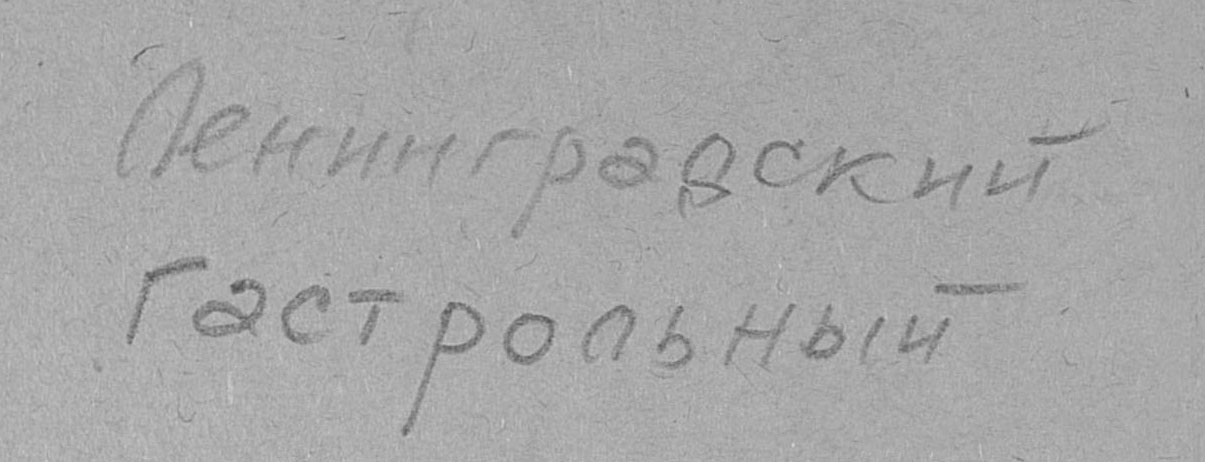 Ленинградский
Гастрольный